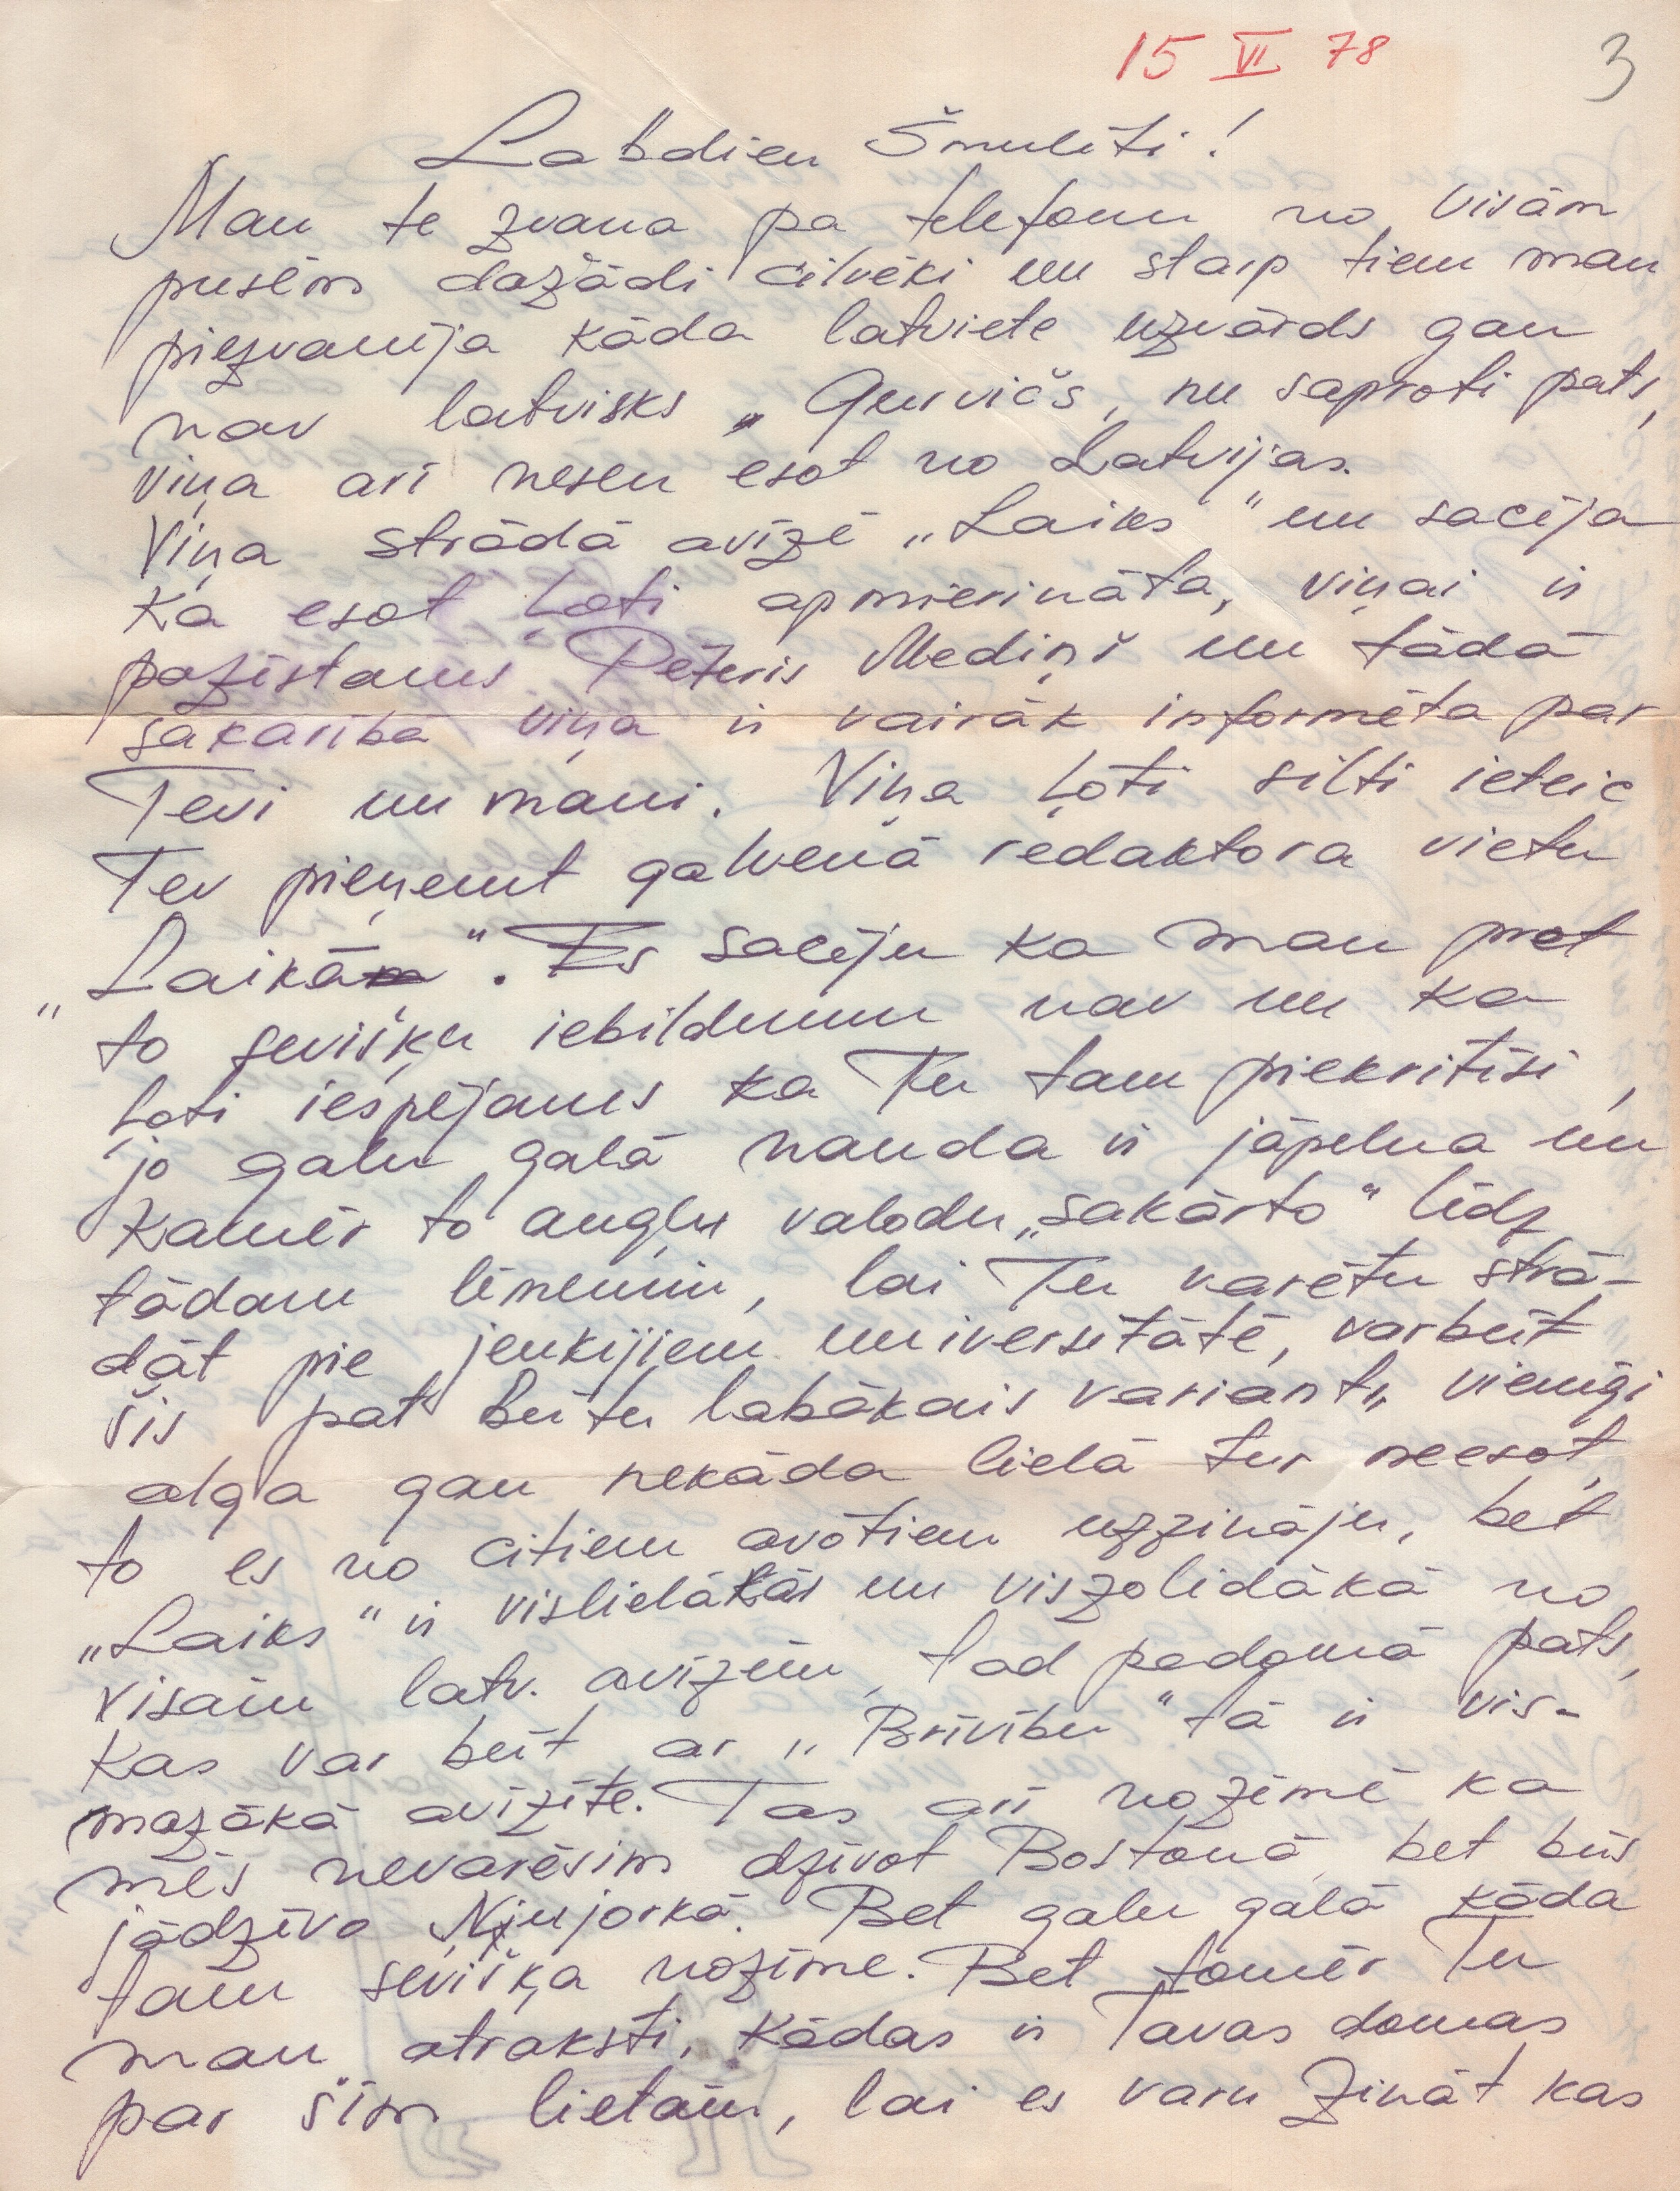 15 VI 78
3
Labdien Šmulīti!
Man te zvana pa telefonu no visām
pusēm dažādi cilvēki un starp tiem man
piezvanīja kāda latviete uzvārds gan
nav latvisks „Gurvičs, nu saproti pats,
viņa arī nesen esot no Latvijas.
Viņa strādā avīzē „Laiks" un sacīja
ka esot ļoti apmierināta, viņai ir
pazīstams Pēteris Mediņš un tādā
sakarībā viņa ir vairāk informēta par
Tevi un mani. Viņa ļoti silti ieteic
Tev pieņemt galvenā redaktora vietu
„Laikā". Es sacīju ka man pret
to sevišķu iebildumu nav un ka
ļoti iespējams ka Tu tam piekritīsi,
jo galu galā nauda ir jāpelna un
kamēr to angļu valodu „sakārto" līdz
tādam līmenim, lai Tu varētu strā-
dāt pie jenkijiem universitātē, varbūt
šis pat būtu labākais variants, vienīgi
alga gan nekāda lielā tur neesot,
to es no citiem avotiem uzzināju, bet
„Laiks" ir vislielākās un viszolidākā no
visām latv. avīzēm, tad padomā pats,
kas var būt ar „Brīvību" tā ir vis-
mazākā avīzīte. Tas arī nozīmē ka
mēs nevarēsim dzīvot Bostonā, bet būs
jādzīvo Ņujorkā. Bet galu galā kāda
tam sevišķa nozīme. Bet tomēr Tu
man atraksti, kādas ir Tavas domas
par šīm lietām, lai es varu zināt kas